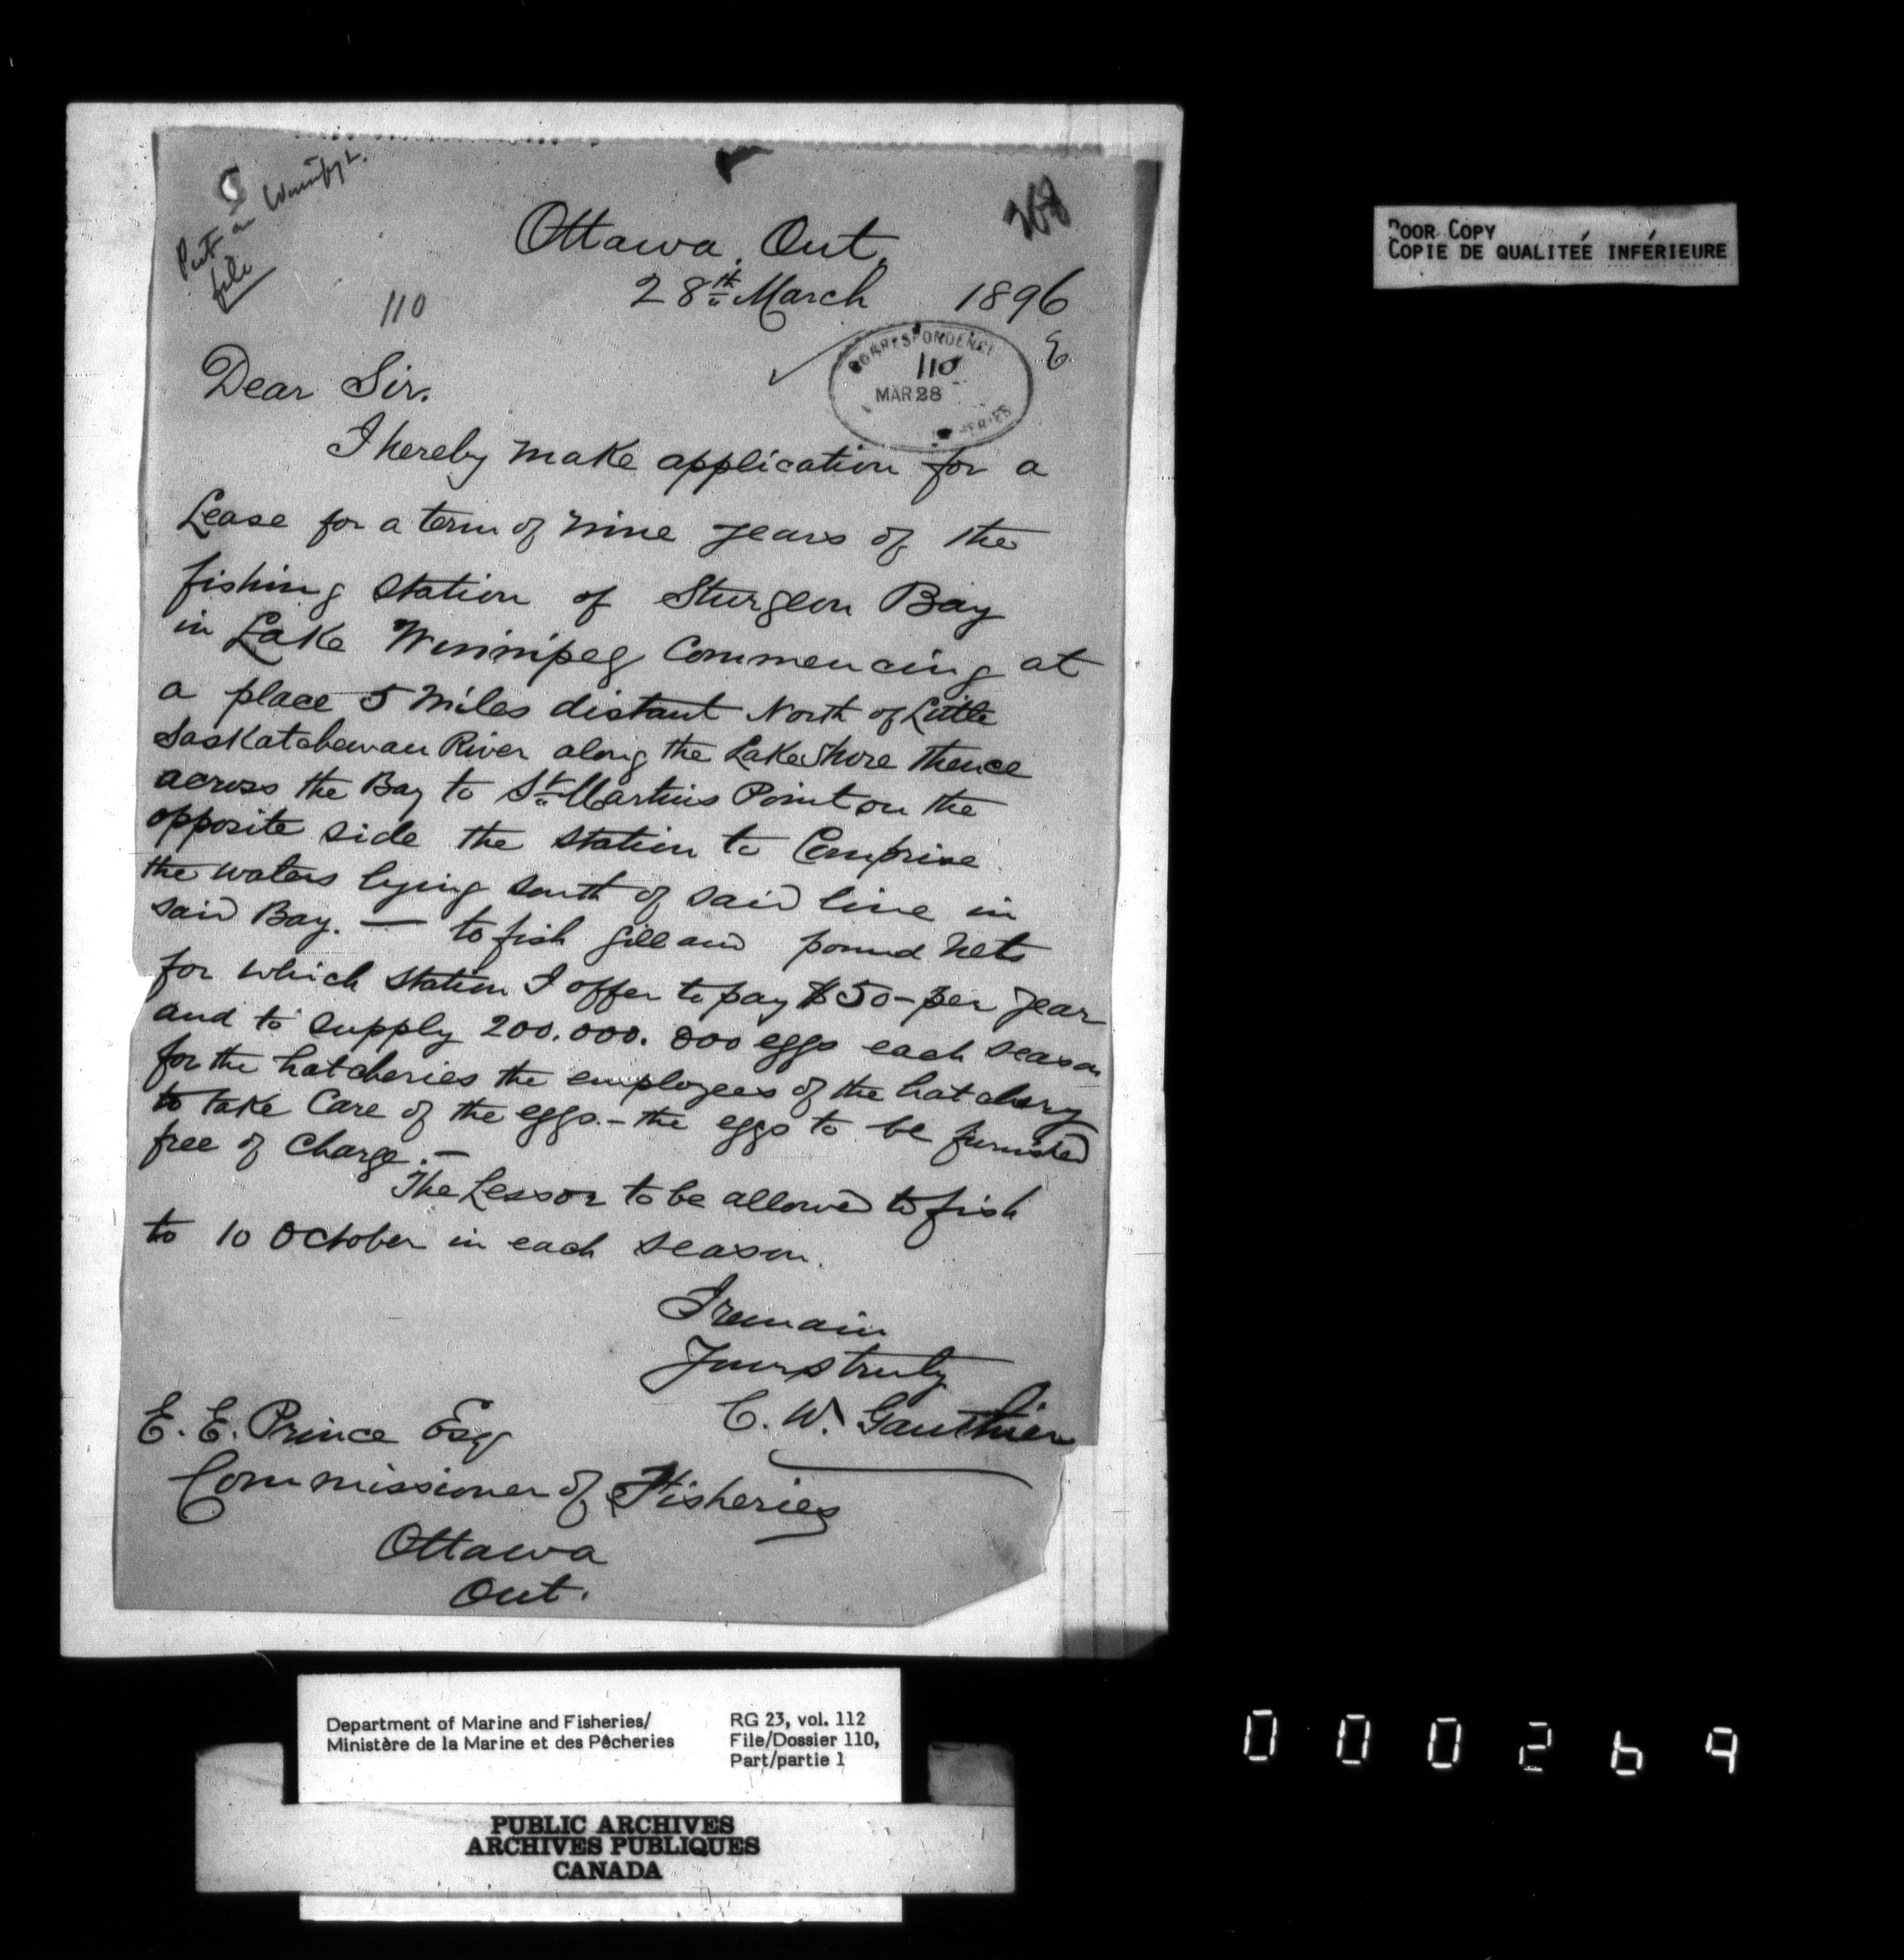 Put on Winnipg L.
file
268
Ottawa, Ont.
28th March 1896
110
CORRESPONDENCE
110
MAR 28
Dear Sir.
I hereby make application for a
Lease for a term of nine years of the
fishing station of Sturgeon Bay
in Lake Winnipeg Commencing at
a place 5 miles distant North of Little
Saskatchewan River along the Lake Shore thence
across the Bay to St Martins Point on the
opposite side the station to Comprise
the waters lying south of said line in
said Bay. — to fish gill and pound nets
for which station I offer to pay $50- per year
and to supply 200.000.000 eggs each season
for the hatcheries the employees of the hatchery
to take Care of the eggs. - the eggs to be furnished
free of charge. —
The Lessor to be allowed to fish
to 10 October in each season.
I remain
Yours truly
C. W. Gauthier
E. E. Prince Esq
Commissioner of Fisheries
Ottawa
Ont.
POOR COPY
COPIE DE QUALITEÉ INFÉRIEURE
Department of Marine and Fisheries/
Ministère de la Marine et des Pêcheries
RG 23, vol. 112
File/Dossier 110,
Part/partie 1
PUBLIC ARCHIVES
ARCHIVES PUBLIQUES
CANADA
000269